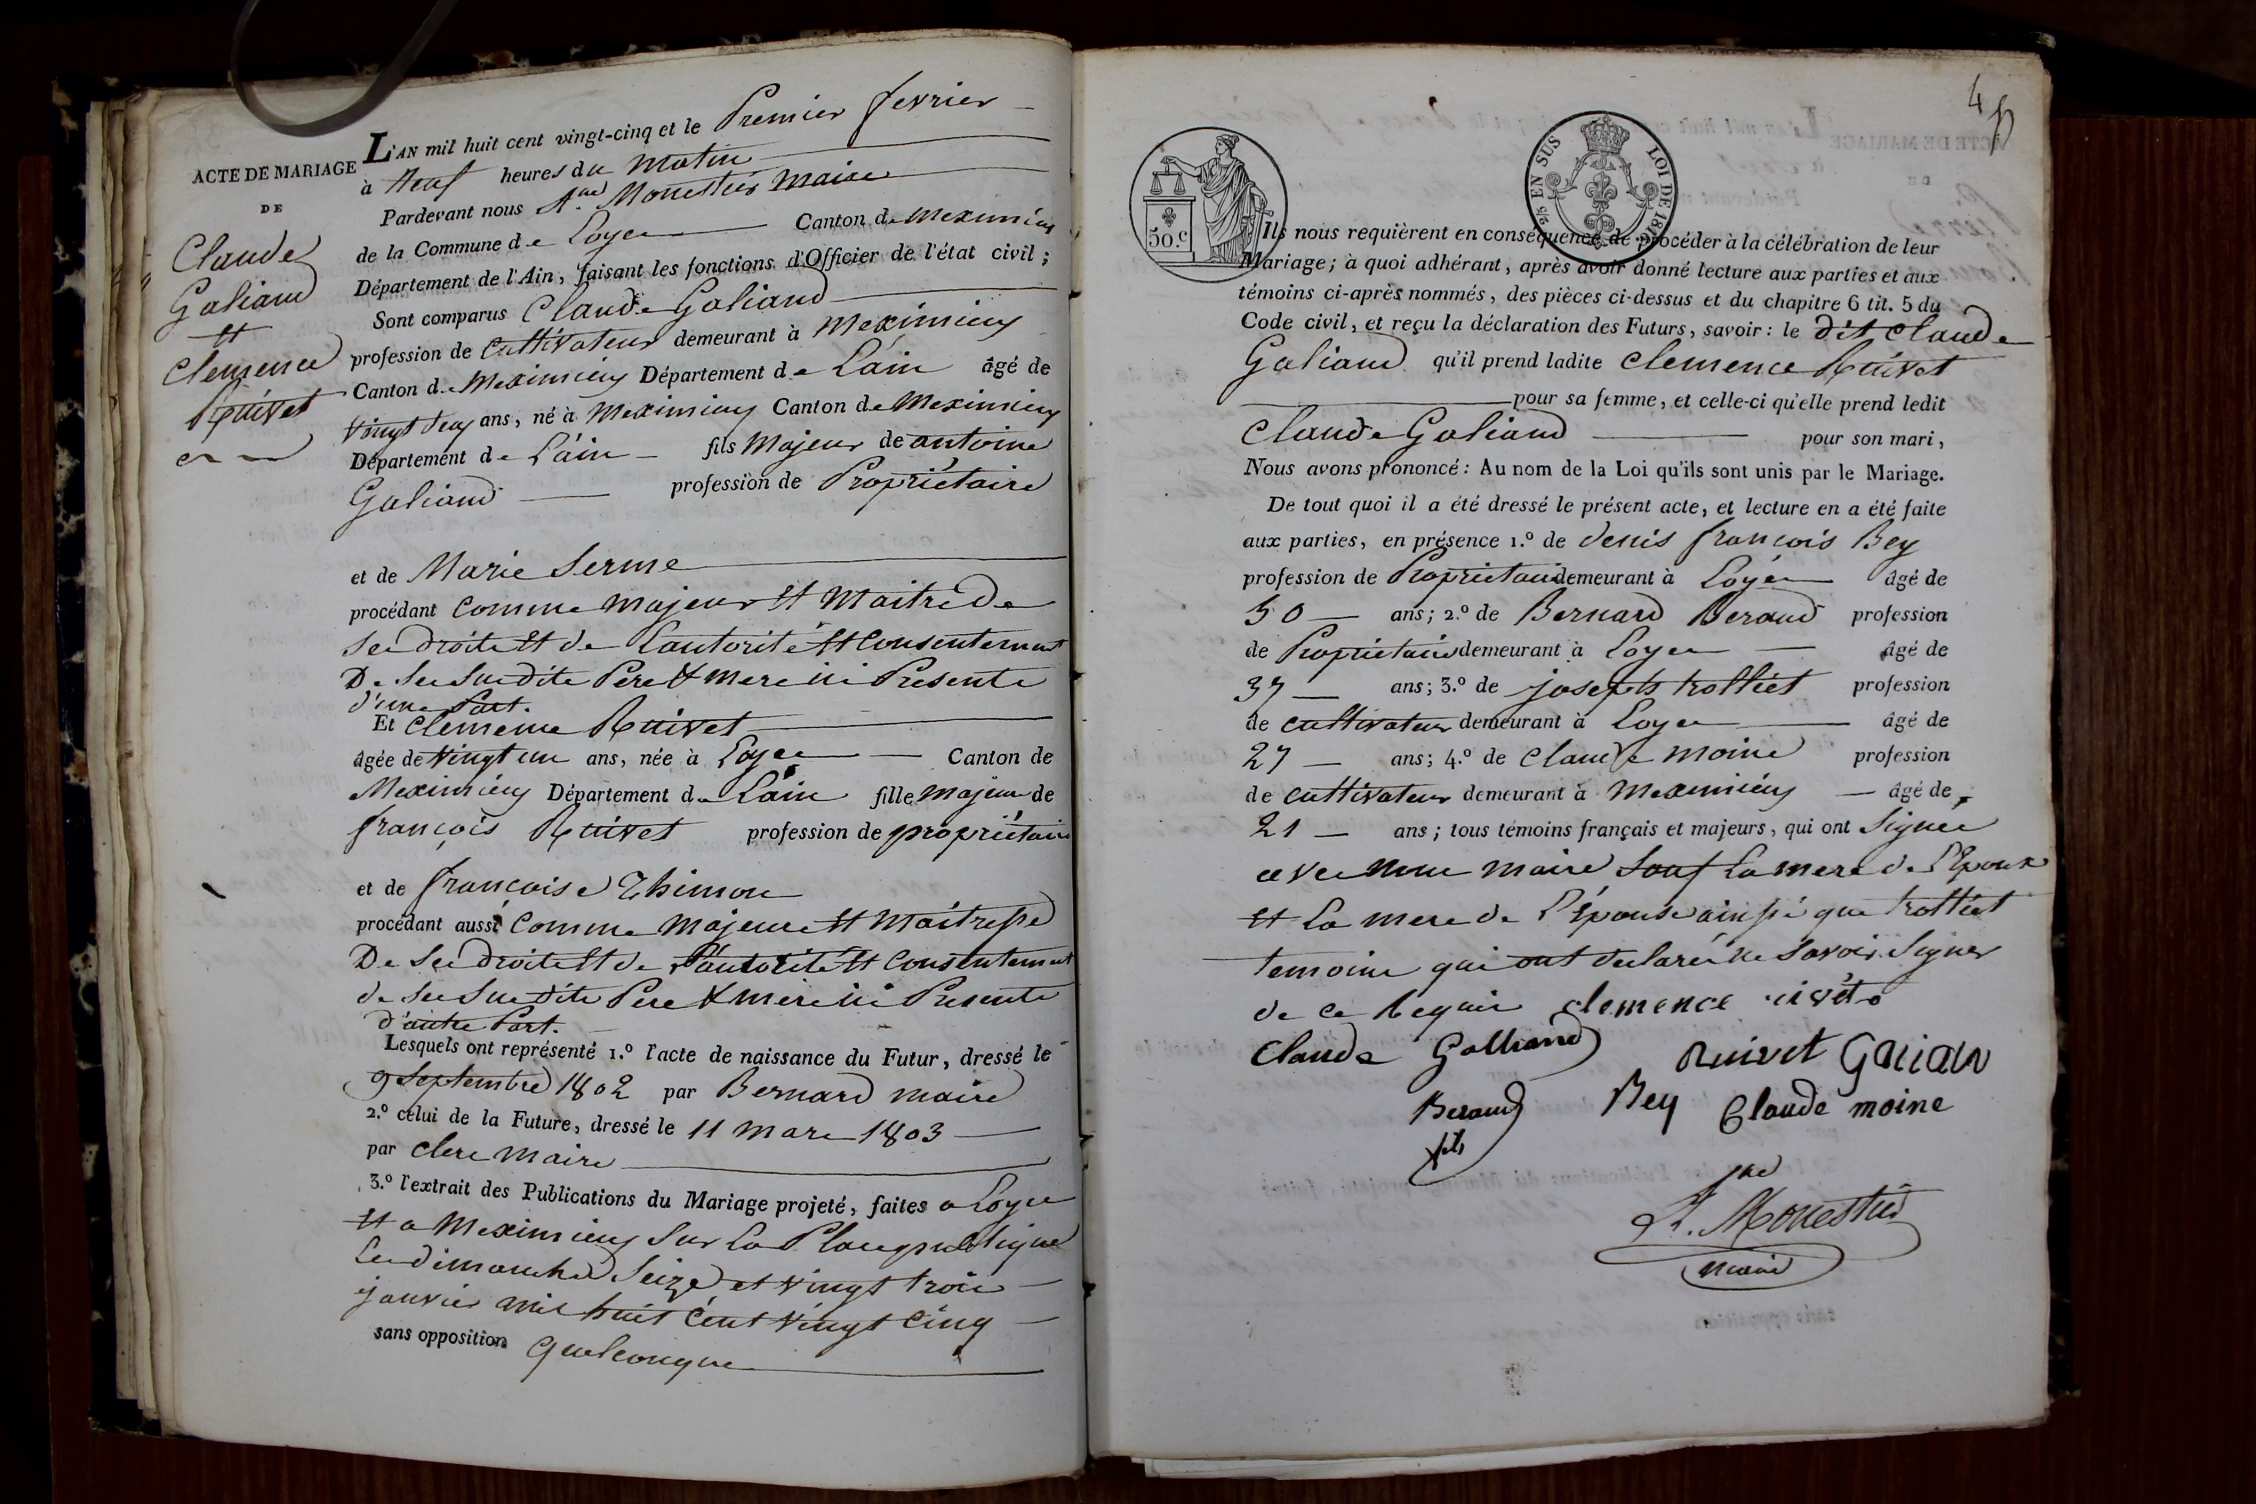 ACTE DE MARIAGE
DE
Claude
Galiand
et
Clemence
Ruivet
L'AN mil huit cent vingt-cinq et le Premier fevrier
à Neuf heures du Matin
Pardevant nous Monestier Maire
de la Commune de Loyes Canton de Meximieux
Département de l'Ain, faisant les fonctions d'Officier de l'état civil;
Sont comparus Claude Galiand
profession de Cultivateur demeurant à Meximieux
Canton de Meximieux Département de L'ain âgé de
Vingt deux ans, né à Meximieux Canton de Meximieux
Département de L'ain fils Majeur de antoine
Galiand profession de Propriétaire
et de Marie Serme
procédant Comme Majeur et Maitre De
ses Droits et de L'autorité et Consentement
De ses susdits Pere & mere ici Presents
d'une Part.
Et Clemence Ruivet
âgée de Vingt un ans, née à Loyes Canton de
Meximieux Département de L'ain fille majeure de
françois Ruivet profession de propriétaire
et de françoise Thimon
procédant aussi Comme Majeure et Maitresse
De ses Droits et de L'autorité et Consentement
de ses susdits Pere & mere ici Presents
d'autre Part.
Lesquels ont représenté 1.º l'acte de naissance du Futur, dressé le
9 Septembre 1802 par Bernard maire
2.º celui de la Future, dressé le 11 Mars 1803
par Clerc Maire
3.º l'extrait des Publications du Mariage projeté, faites a Loyes
et a Meximieux Sur La Place publique
Les dimanches Seize et vingt trois
janvier mil huit Cent Vingt Cinq
sans opposition Quelconque
4
50.C
2/5 EN SUS
LOI DE 1816
Ils nous requièrent en conséquence de procéder à la célébration de leur
Mariage; à quoi adhérant, après avoir donné lecture aux parties et aux
témoins ci-après nommés, des pièces ci-dessus et du chapitre 6 tit. 5 du
Code civil, et reçu la déclaration des Futurs, savoir: le dit Claude
Galiand qu'il prend ladite Clemence Ruivet
pour sa femme, et celle-ci qu'elle prend ledit
Claude Galiand pour son mari,
Nous avons prononcé: Au nom de la Loi qu'ils sont unis par le Mariage.
De tout quoi il a été dressé le présent acte, et lecture en a été faite
aux parties, en présence 1.º de Denis françois Bey
profession de Propriétaire demeurant à Loyes âgé de
50 ans; 2.º de Bernard Beraud profession
de Propriétaire demeurant à Loyes âgé de
37 ans; 3.º de joseph trolliet profession
de Cultivateur demeurant à Loyes âgé de
27 ans; 4.º de Claude Moine profession
de Cultivateur demeurant à Meximieux âgé de
21 ans; tous témoins français et majeurs, qui ont Signés
avec Nous Maire Sauf La mere de L'Epoux
et La mere de L'Epouse ainsi que trolliet
temoins qui ont declarés ne Savoir Signer
de ce Requis clemence rivét
Claude Galliand Ruivet Galian
Beraud Bey Claude moine
fils
Monestier
Maire